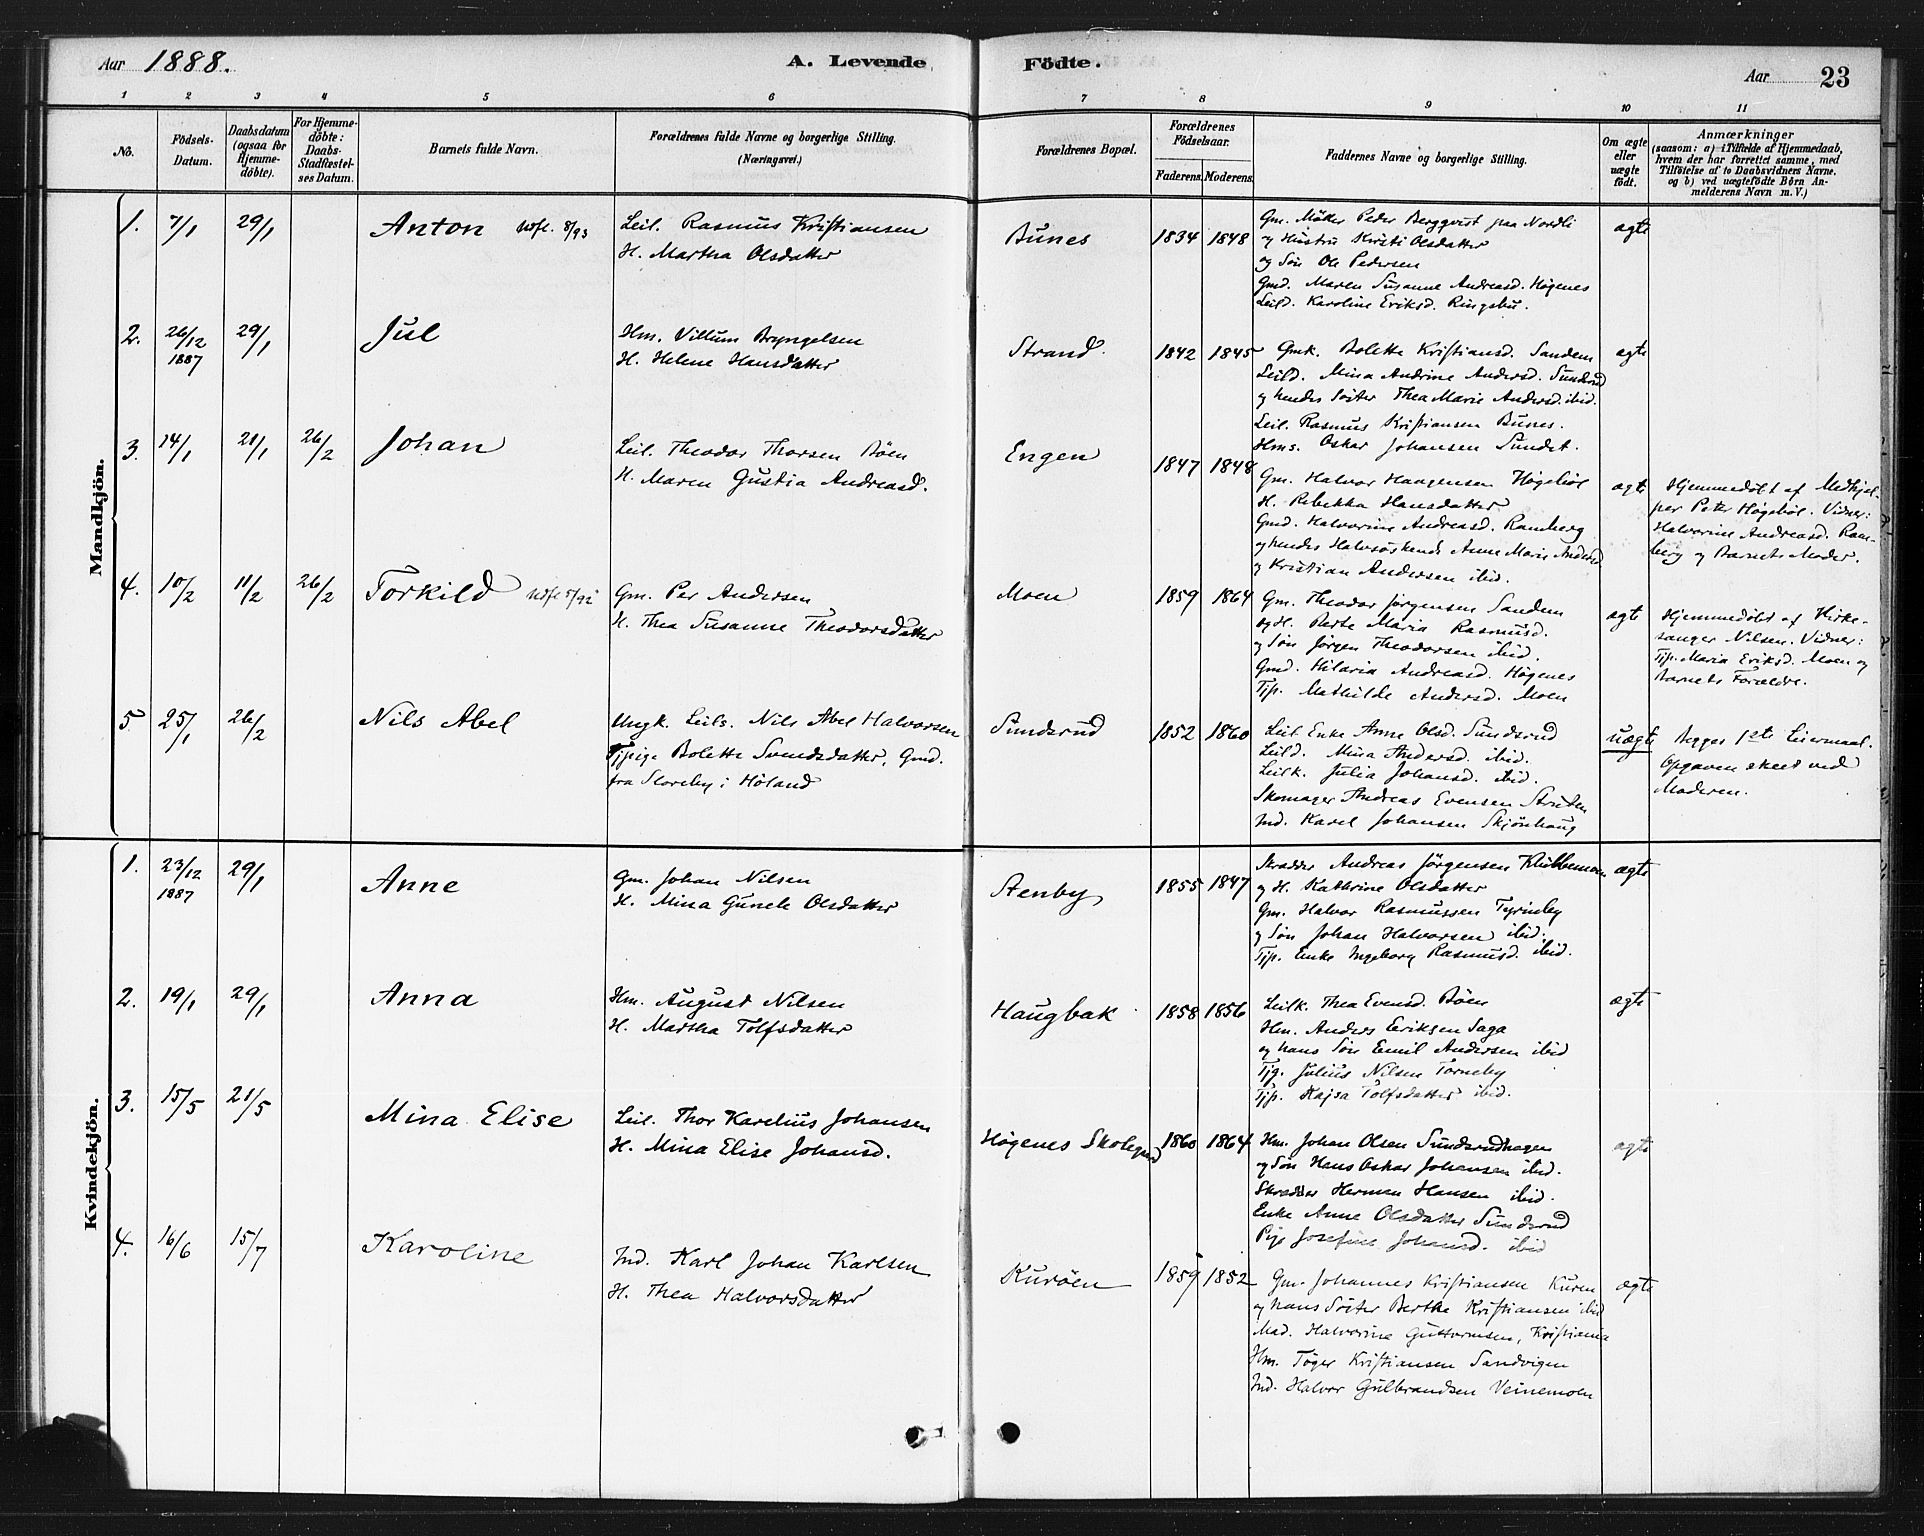 Aar 1888. A. Levende Födte. Aar 23
1 2 3 4 5 6 7 8 9 10 11
No. Födsels-Datum. Daabsdatum (ogsaa for Hjemme-döbte). For Hjemme-döbte: Daabs-Stadfæstel-ses Datum. Barnets fulde Navn. Forældrenes fulde Navne og borgerlige Stilling. (Næringsvei.) Forældrenes Bopæl. Forældrenes Födselsaar. Faderens. Moderens. Faddernes Navne og borgerlige Stilling. Om ægte eller uægte födt. Anmærkninger (saasom: a) i Tilfælde af Hjemmedaab, hvem der har forrettet samme, med Tilföielse af to Daabsvidners Navne, og b) ved uægtefödte Börn An-melderens Navn m. V.)
Mandkjön.
1. 7/1 29/1 Anton Udfl. 8/93
Leil. Rasmus Kristiansen
H. Martha Olsdatter
Bunes 1834 1848
Gm. Møller Peder Bergqvist paa Nordli
og Hustru Kirsti Olsdatter
og Søn Ole Pedersen
Gmd. Maren Susanne Andreasd. Høgenes
Leild. Karoline Eriksd. Ringsbu.
ægte
2. 26/12 1887 29/1 Jul
Hm. Villum Bryngelsen
H. Helene Hansdatter
Strand. 1842 1845
Gmk. Bolette Kristiansd. Sandem
Leild. Mina Andrine Andersd. Sundsrud
og hendes Søster Thea Marie Andersd. ibid.
Leil. Rasmus Kristiansen Bunes.
Hms. Oskar Johansen Sundet.
ægte
3. 14/1 21/1 26/2 Johan
Leil. Theodor Thorsen Bøen
H. Maren Gustia Andreasd.
Engen 1847 1848
Gm. Halvor Haagensen Høgebøl
H. Rebekka Hansdatter
Gmd. Halvorine Andreasd. Ramberg
og hendes Halvsøskende Anne Marie Andersd
og Kristian Andersen ibid.
ægte
Hjemmedøbt af Medhjæl-
per Peter Høgebøl. Vidner:
Halvorine Andreasd. Ram-
berg og Barnets Moder.
4. 10/2 11/2 26/2 Torkild Udfl 8/92
Gm. Per Andersen
H. Thea Susanne Theodorsdatter
Moen 1859 1864
Gm. Theodor Jørgensen Sandem
og H. Berte Maria Rasmusd.
og Søn Jørgen Theodorsen ibid.
Gmd. Hilaria Andreasd. Høgenes
Tjp. Mathilde Andersd. Moen
ægte
Hjemmedøbt af Kirke-
sanger Nilsen. Vidner:
Tjp. Maria Eriksd. Moen og
Barnets Forældre.
5 25/1 26/2 Nils Abel
Ungk. Leils. Nils Abel Halvorsen
Tjpige Bolette Svendsdatter, Gmd.
fra Storeby i Høland
Sundsrud 1852 1860
Leil Enke Anne Olsd. Sundsrud
Leild. Mina Andersd. ibid.
Leilk. Julia Johansd. ibid.
Skomager Andreas Evensen Struten
Ind. Karel Johansen Skjønhaug
uægte
Begges 1ste Leiermaal.
Opgaven skeet ved
Moderen.
Kvindekjön.
1. 23/12 1887 29/1 Anne
Gm. Johan Nilsen
H. Mina Gunele Olsdatter
Stenby 1855 1847
Skrædder Andreas Jørgensen Klubbemoen
og H. Kathrine Olsdatter
Gm. Halvor Rasmussen Tyrineby
og Søn Johan Halvorsen ibid.
Tjp. Enke Ingeborg Rasmusd. ibid.
ægte
2. 19/1 29/1 Anna
Hm. August Nilsen
H. Martha Tolfsdatter
Haugbak 1858 1856
Leilk. Thea Evensd. Bøen
Hm. Anders Eriksen Saga
og hans Søn Emil Andersen ibid
Tjg. Julius Nilsen Torneby
Tjp. Kajsa Tolfsdatter ibid.
ægte
3. 15/5 21/5 Mina Elise
Leil. Thor Karelius Johansen
H. Mina Elise Johansd.
Høgenes Skolegaard 1860 1864
Hm. Johan Olsen Sundsrudhagen
og Søn Hans Oskar Johansen ibid.
Skrædder Herman Hansen ibid.
Enke Anne Olsdatter Sundsrud
Pige Josefine Johansd. ibid
ægte
4. 16/6 15/7 Karoline
Ind. Karl Johan Karlsen
H. Thea Halvorsdatter
Kurøen 1859 1852
Gm. Johannes Kristiansen Kuren
og hans Søster Berthe Kristiansen ibid
Mad. Halvorine Guttormsen, Kristiania
Hm. Tøger Kristiansen Sandvigen
Ind. Halvor Gulbrandsen Veinemoen
ægte